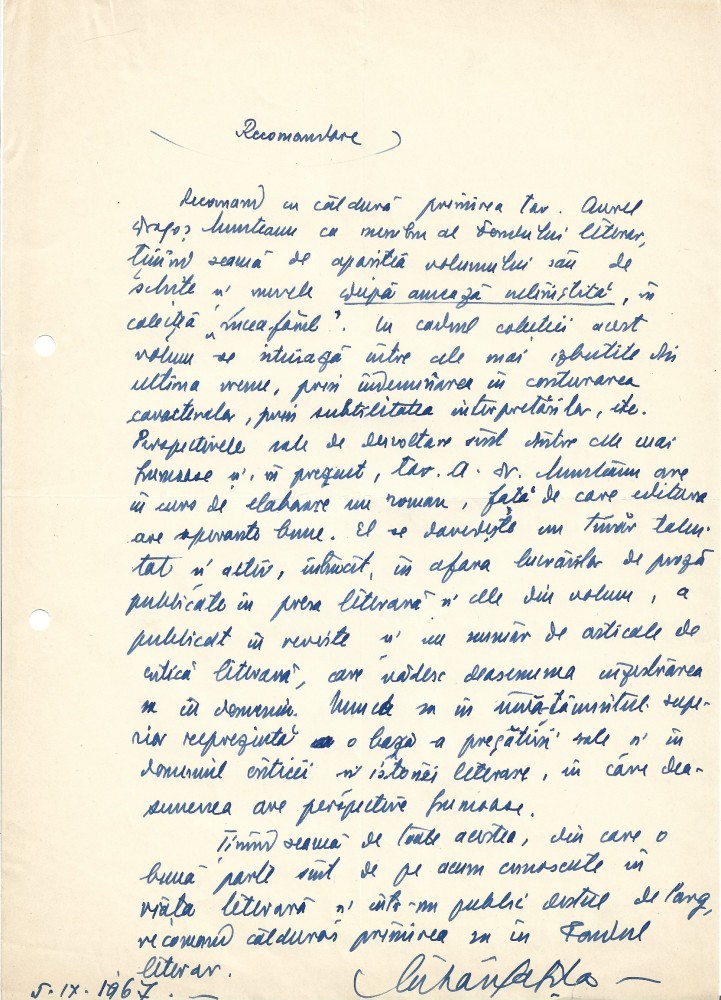 Recomandare
Recomand cu căldură primirea tov. Aurel
Dragoș Munteanu ca membru al Fondului literar,
ținînd seamă de apariția volumului său de
schițe și nuvele După amează neliniștită, în
colecția „Luceafărul". În cadrul colecției acest
volum se situiază între cele mai izbutite din
ultima vreme, prin îndemînarea în conturarea
caracterelor, prin subtilitatea interpretărilor, etc.
Perspectivele sale de dezvoltare sînt dintre cele mai
frumoase și, în prezent, tov. A. Dr. Munteanu are
în curs de elaborare un roman, față de care editura
are speranțe bune. El se dovedește un tînăr talen-
tat și activ, întrucît, în afara lucrărilor de proză
publicate în presa literară și cele din volum, a
publicat în reviste și un număr de articole de
critică literară, care vădesc deasemenea înzestrarea
sa în domeniu. Munca sa în învățămîntul supe-
rior reprezintă o bază a pregătirii sale și în
domeniul criticii și istoriei literare, în care dea-
semenea are perspective frumoase.
Ținînd seamă de toate acestea, din care o
bună parte sînt de pe acum cunoscute în
viața literară și într-un public destul de larg,
recomand călduros primirea sa în Fondul
literar.
5·IX·1967.